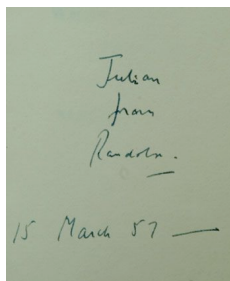 Julian
from
Randolph.
15 March 57 —